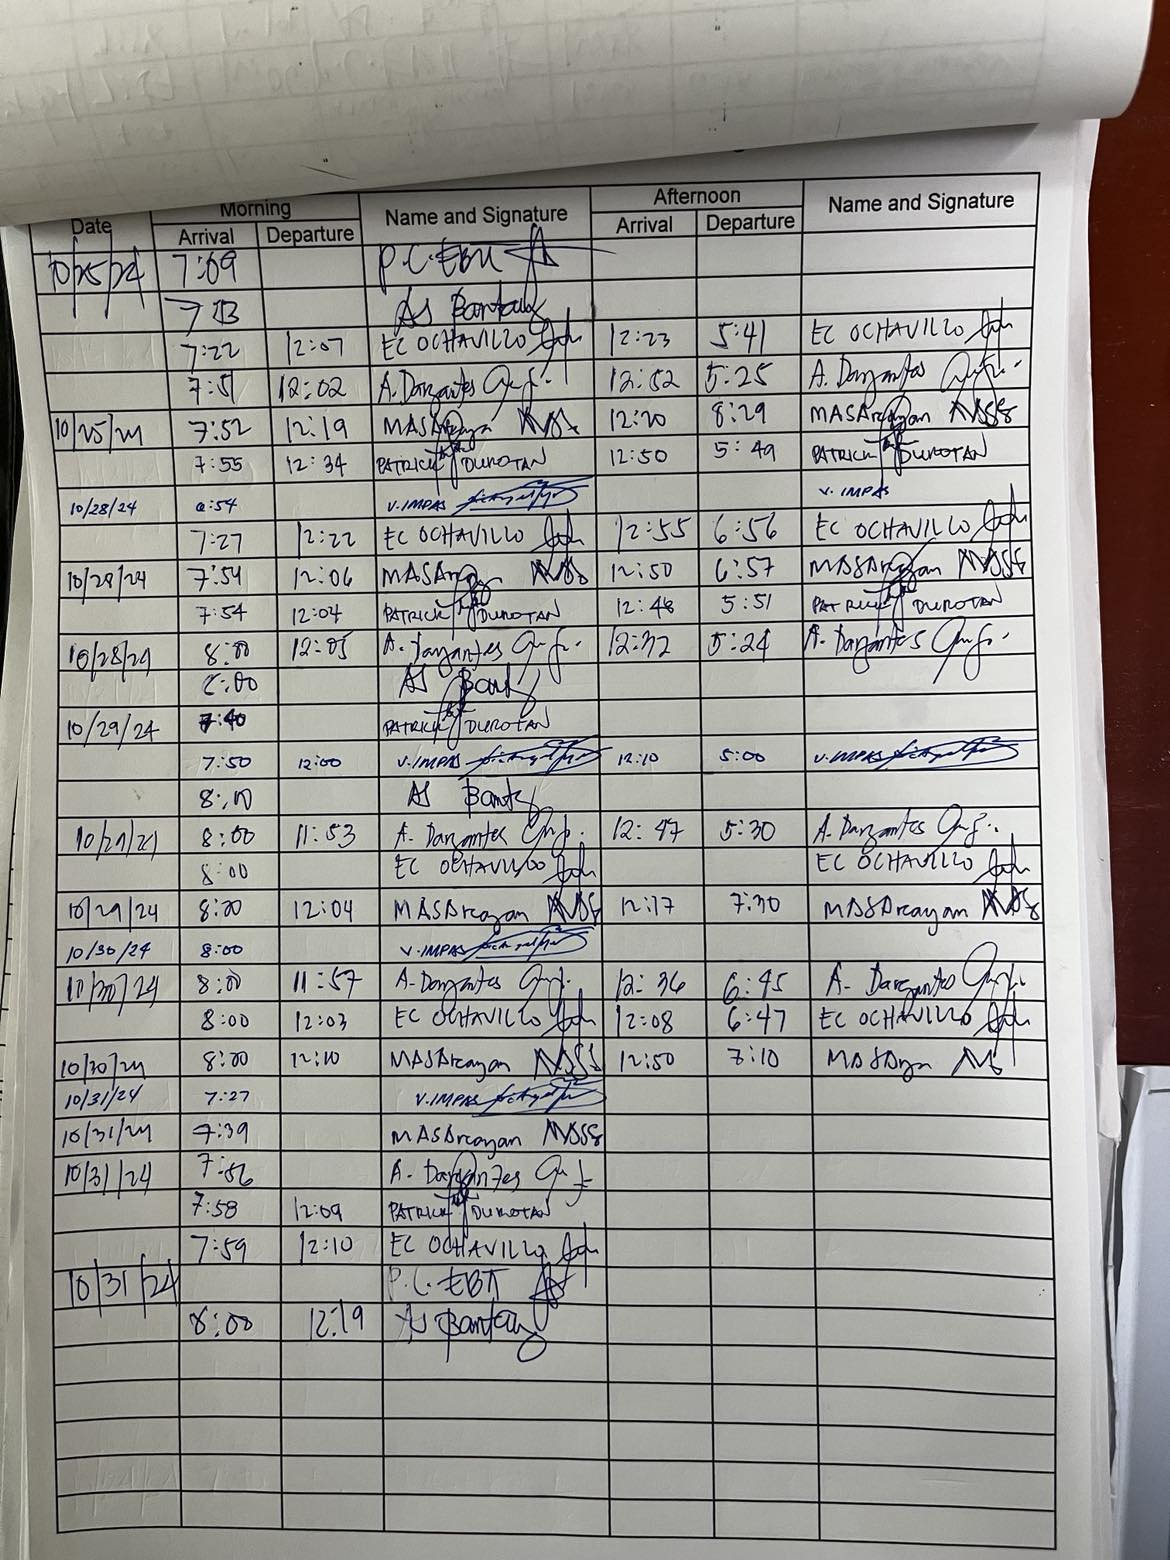 Date Morning Name and Signature Afternoon Name and Signature
Arrival Departure Arrival Departure
10/25/24 7:09 P.C. EBU
7:13 AS Bantay
7:22 12:07 EC OCHAVILLO 12:23 5:41 EC OCHAVILLO
7:51 12:02 A. Dargantes 12:52 5:25 A. Dargantes
10/25/24 7:52 12:19 MASArcayan 12:20 8:29 MASArcayan
7:55 12:34 PATRICK DUROTAN 12:50 5:49 PATRICK DUROTAN
10/28/24 6:54 V. IMPAS V. IMPAS
7:27 12:22 EC OCHAVILLO 12:55 6:56 EC OCHAVILLO
10/28/24 7:54 12:06 MASArcayan 12:50 6:57 MASArcayan
7:54 12:04 PATRICK DUROTAN 12:48 5:51 PATRICK DUROTAN
10/28/24 8:00 12:05 A. Dargantes 12:32 5:24 A. Dargantes
8:00 AS Bantay
10/29/24 7:40 PATRICK DUROTAN
7:50 12:00 V. IMPAS 12:10 5:00 V. IMPAS
8:00 AS Bantay
10/29/24 8:00 11:53 A. Dargantes 12:47 5:30 A. Dargantes
8:00 EC OCHAVILLO EC OCHAVILLO
10/29/24 8:00 12:04 MASArcayan 12:17 7:30 MASArcayan
10/30/24 8:00 V. IMPAS
10/30/24 8:00 11:57 A. Dargantes 12:36 6:45 A. Dargantes
8:00 12:03 EC OCHAVILLO 12:08 6:47 EC OCHAVILLO
10/30/24 8:00 12:10 MASArcayan 12:50 7:10 MASArcayan
10/31/24 7:27 V. IMPAS
10/31/24 7:39 MASArcayan
10/31/24 7:56 A. Dargantes
7:58 12:09 PATRICK DUROTAN
7:59 12:10 EC OCHAVILLO
10/31/24 P.C. EBU
8:00 12:19 AS Bantay